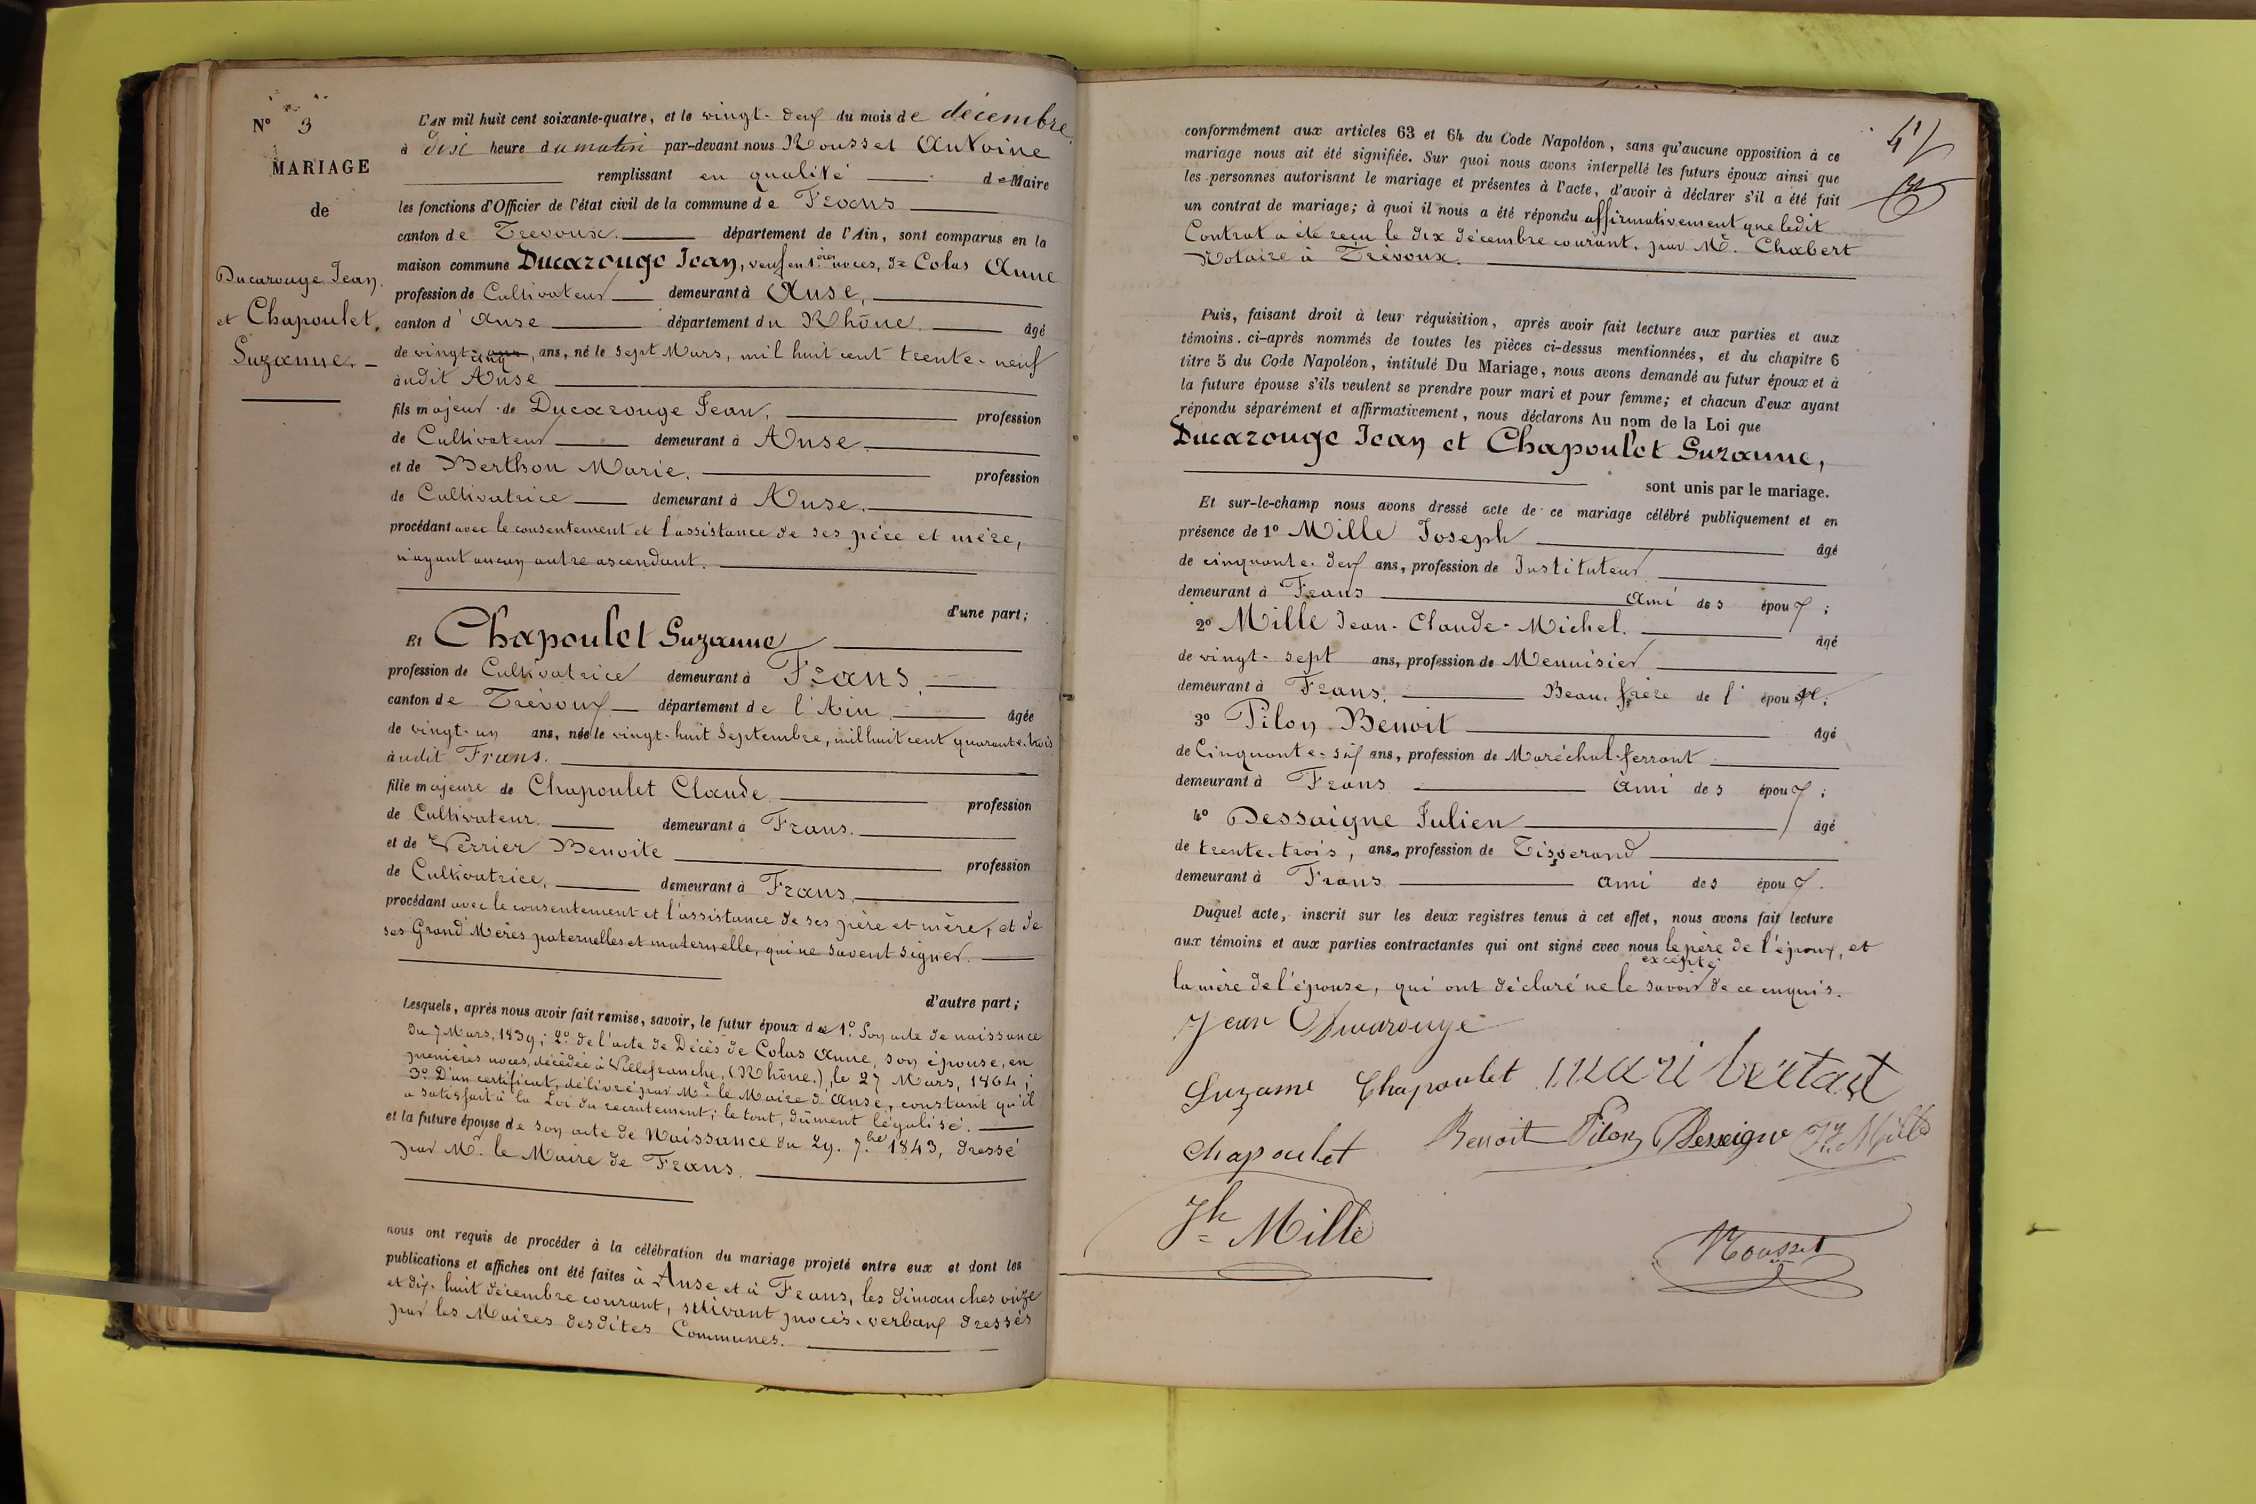 N° 3
MARIAGE
de
Ducarouge Jean
et Chapoulet
Suzanne.
L'AN mil huit cent soixante-quatre, et le vingt-deux du mois de décembre
à dix heure du matin par-devant nous Rousset Antoine
remplissant en qualité de Maire
les fonctions d'Officier de l'état civil de la commune de Frans
canton de Trévoux. département de l'Ain, sont comparus en la
maison commune Ducarouge Jean, veuf en 1ères noces, de Colas Anne
profession de Cultivateur demeurant à Anse,
canton d'Anse département du Rhône. âgé
de vingt-cinq ans, né le sept Mars, mil huit cent trente-neuf
audit Anse
fils majeur de Ducarouge Jean, profession
de Cultivateur demeurant à Anse.
et de Berthon Marie, profession
de Cultivatrice demeurant à Anse.
procédant avec le consentement et l'assistance de ses père et mère,
n'ayant aucun autre ascendant.
d'une part;
Et Chapoulet Suzanne
profession de Cultivatrice demeurant à Frans,
canton de Trévoux département de l'Ain âgée
de vingt-un ans, née le vingt-huit Septembre, mil huit cent quarante-trois
audit Frans.
fille majeure de Chapoulet Claude profession
de Cultivateur. demeurant à Frans.
et de Verrier Benoite profession
de Cultivatrice, demeurant à Frans,
procédant avec le consentement et l'assistance de ses père et mère, et de
ses Grand'Mères paternelles et maternelle, qui ne savent signer.
d'autre part;
Lesquels, après nous avoir fait remise, savoir, le futur époux de 1° Son acte de naissance
du 7 Mars, 1839; 2° de l'acte de Décès de Colas Anne, son épouse, en
premières noces, décédée à Villefranche, (Rhône.), le 27 Mars, 1864;
3° D'un certificat, délivré par Mr le Maire d'Anse, constant qu'il
a satisfait à la Loi du recrutement; le tout, dûment légalisé.
et la future épouse de son acte de Naissance du 29. 7bre 1843, dressé
par Mr le Maire de Frans.
nous ont requis de procéder à la célébration du mariage projeté entre eux et dont les
publications et affiches ont été faites à Anse et à Frans, les dimanches onze
et dix-huit décembre courant, suivant procès-verbaux dressés
par les Maires desdites Communes.
conformément aux articles 63 et 64 du Code Napoléon, sans qu'aucune opposition à ce
mariage nous ait été signifiée. Sur quoi nous avons interpellé les futurs époux ainsi que
les personnes autorisant le mariage et présentes à l'acte, d'avoir à déclarer s'il a été fait
un contrat de mariage; à quoi il nous a été répondu affirmativement que ledit
Contrat a été reçu le dix décembre courant, par Me. Chabert
Notaire à Trévoux.
Puis, faisant droit à leur réquisition, après avoir fait lecture aux parties et aux
témoins. ci-après nommés de toutes les pièces ci-dessus mentionnées, et du chapitre 6
titre 5 du Code Napoléon, intitulé Du Mariage, nous avons demandé au futur époux et à
la future épouse s'ils veulent se prendre pour mari et pour femme; et chacun d'eux ayant
répondu séparément et affirmativement, nous déclarons Au nom de la Loi que
Ducarouge Jean et Chapoulet Suzanne,
sont unis par le mariage.
Et sur-le-champ nous avons dressé acte de ce mariage célébré publiquement et en
présence de 1° Mille Joseph âgé
de cinquante-deux ans, profession de Instituteur
demeurant à Frans Ami des époux;
2° Mille Jean-Claude-Michel. âgé
de vingt-sept ans, profession de Menuisier
demeurant à Frans. Beau-frère de l'épouse;
3° Pilon Benoit âgé
de Cinquante-six ans, profession de Maréchal-ferrant
demeurant à Frans ami des époux;
4° Dessaigne Julien âgé
de trente-trois, ans, profession de Tisserand
demeurant à Frans ami des époux.
Duquel acte, inscrit sur les deux registres tenus à cet effet, nous avons fait lecture
aux témoins et aux parties contractantes qui ont signé avec nous excepté le père de l'époux, et
la mère de l'épouse, qui ont déclaré ne le savoir de ce enquis.
Jean Ducarouge
Suzanne Chapoulet mari bertait
Chapoulet Benoit Pilon Dessaigne Mille
Jh Mille
Rousset